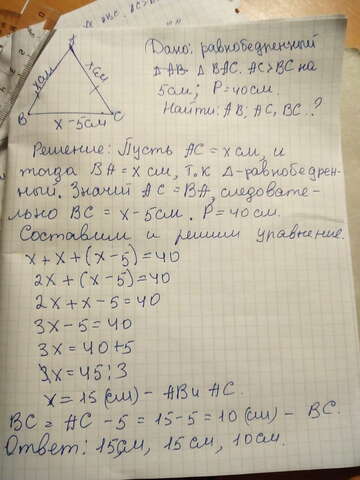 A
x см
x см
B
C
x - 5 см
Дано: равнобедренный
Δ BAC. AC > BC на
5см; P = 40см.
Найти: AB; AC, BC.?
Решение: Пусть AC = x см, и
тогда BA = x см, т.к Δ-равнобедрен-
ный. Значит AC = BA, следовате-
льно BC = x - 5см. P = 40 см.
Составим и решим уравнение.
x + x + (x - 5) = 40
2x + (x - 5) = 40
2x + x - 5 = 40
3x - 5 = 40
3x = 40 + 5
3x = 45 : 3
x = 15 (см) - AB и AC.
BC = AC - 5 = 15 - 5 = 10 (см) - BC.
Ответ: 15см, 15 см, 10см.